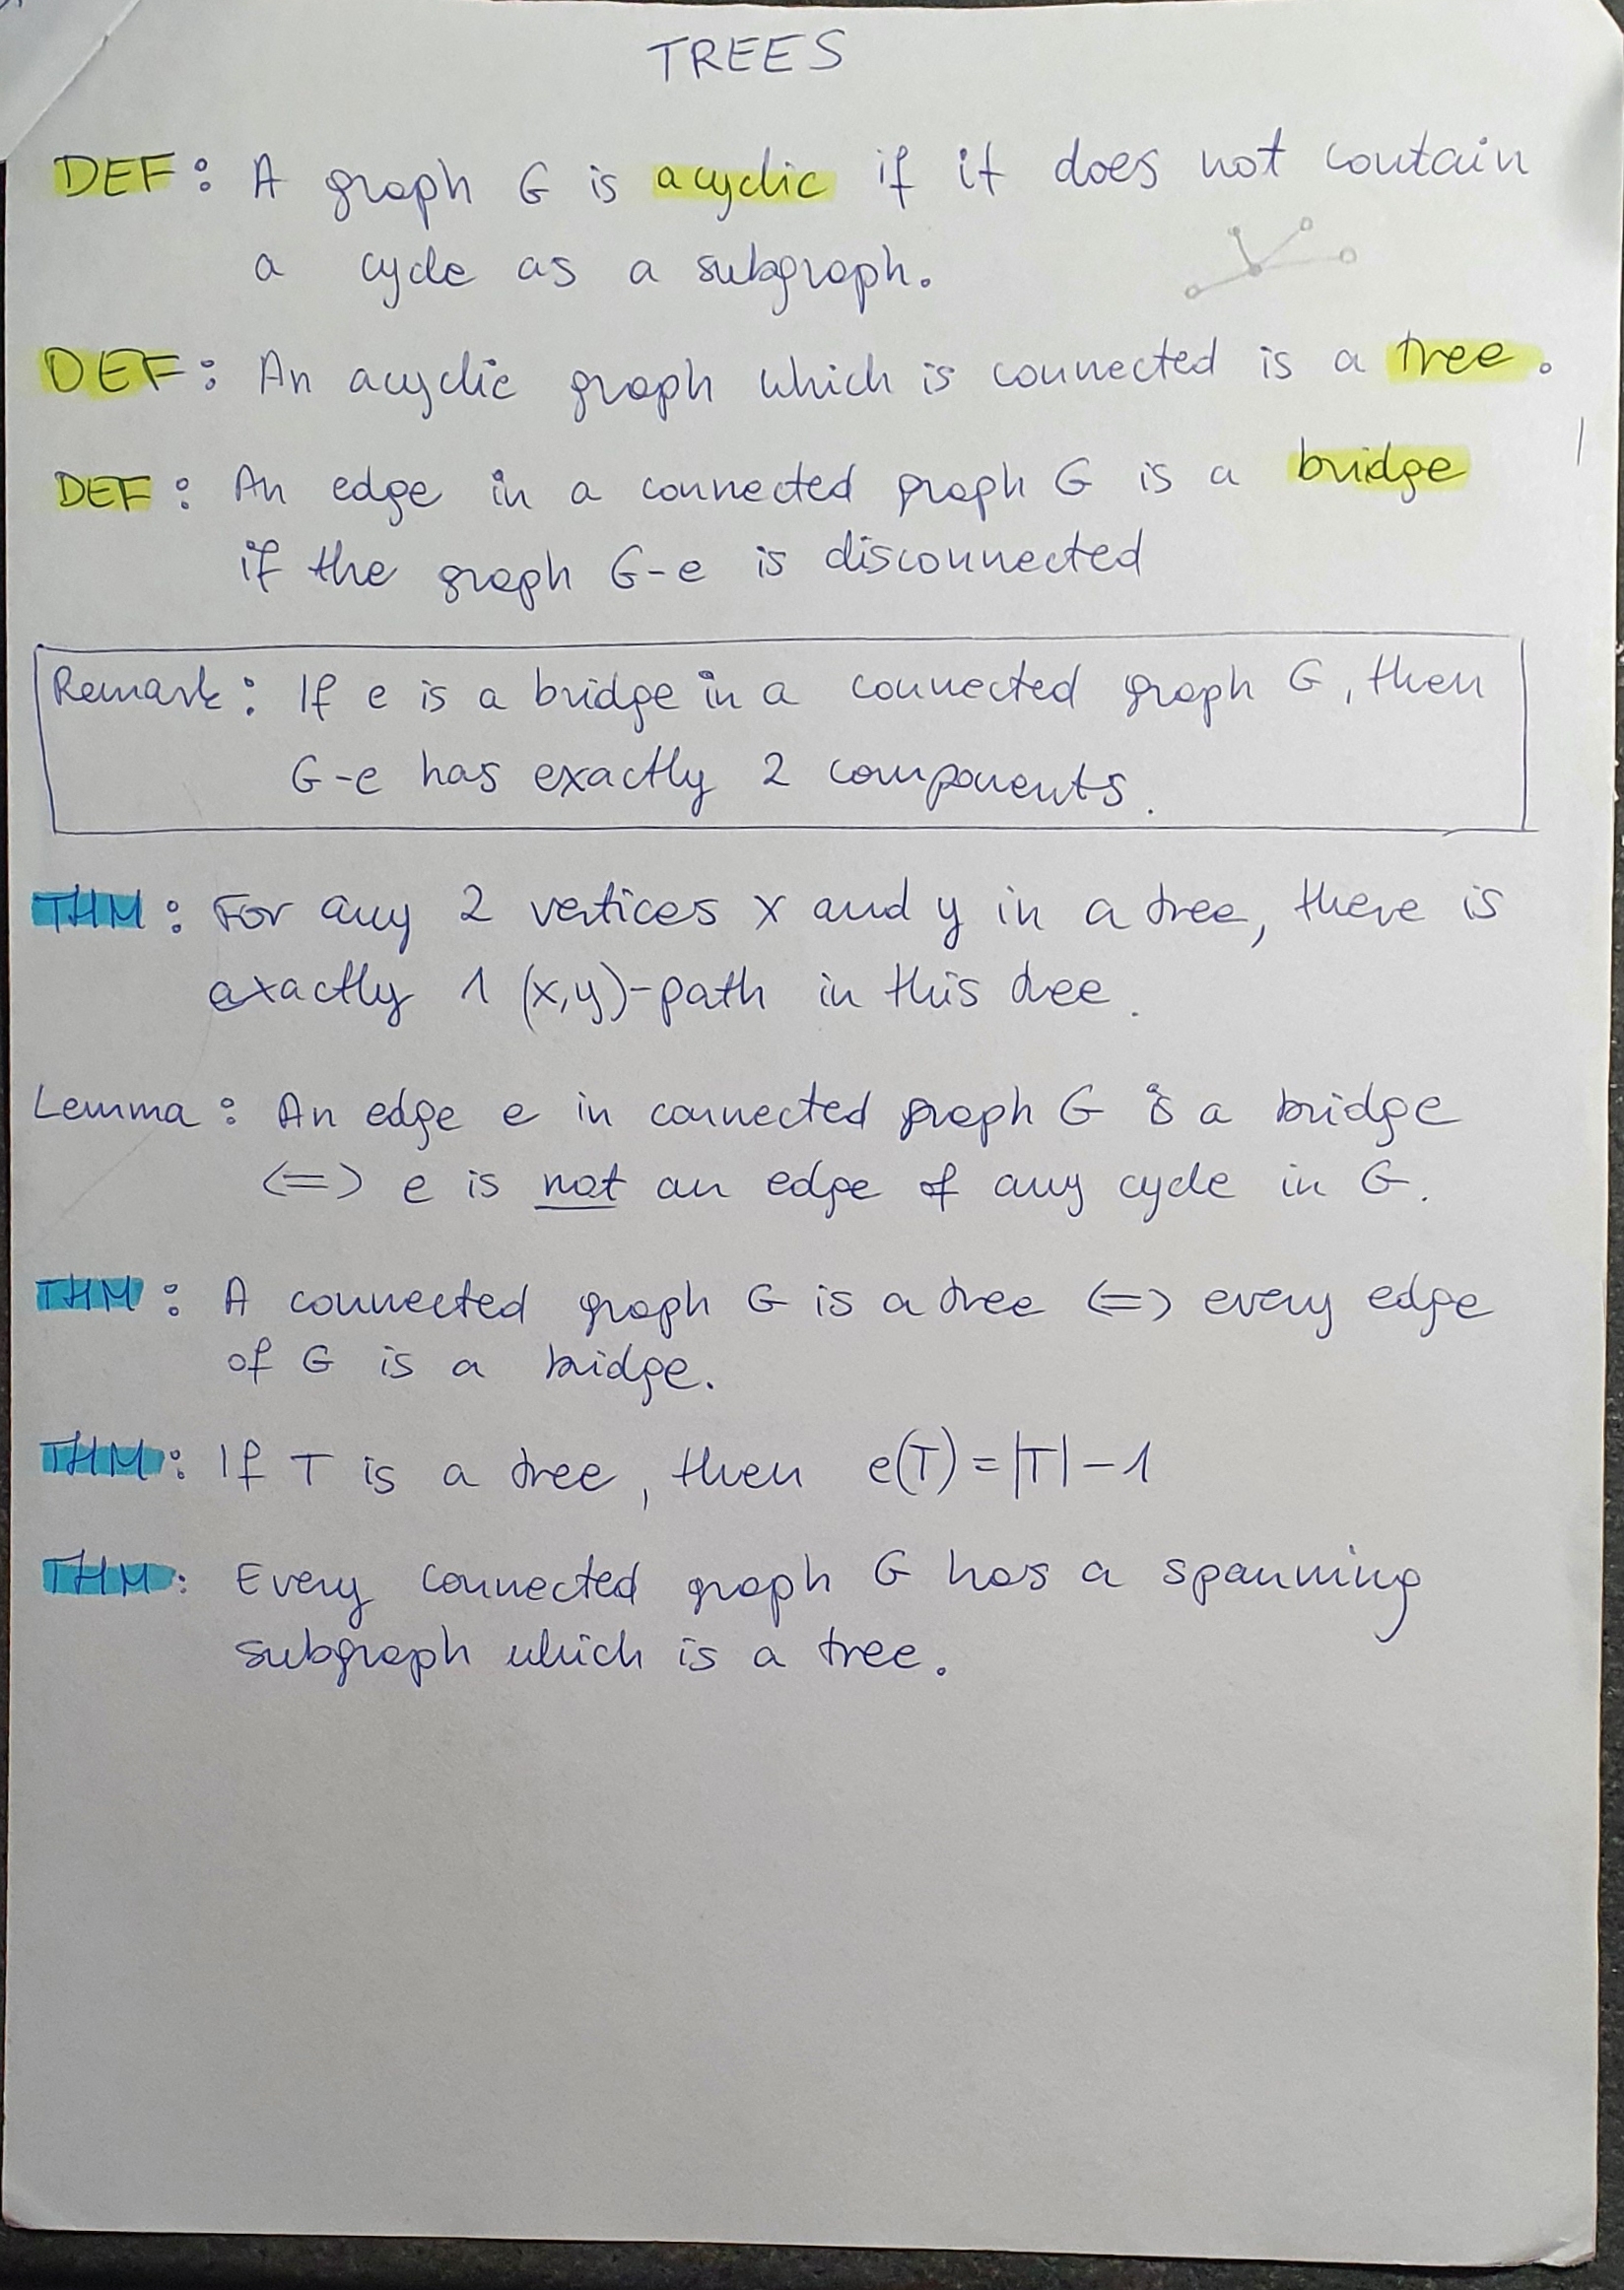 TREES
DEF: A graph G is acyclic if it does not contain
a cycle as a subgraph.
DEF: An acyclic graph which is connected is a tree.
DEF: An edge in a connected graph G is a bridge
if the graph G-e is disconnected
Remark: If e is a bridge in a connected graph G, then
G-e has exactly 2 components.
THM: For any 2 vertices x and y in a tree, there is
exactly 1 (x,y)-path in this tree.
Lemma: An edge e in connected graph G is a bridge
<=> e is not an edge of any cycle in G.
THM: A connected graph G is a tree <=> every edge
of G is a bridge.
THM: If T is a tree, then e(T)=|T|-1
THM: Every connected graph G has a spanning
subgraph which is a tree.